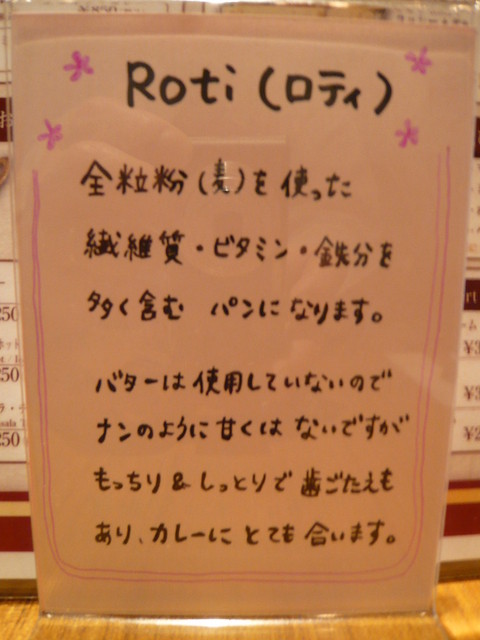 Roti（ロティ）
全粒粉（麦）を使った
繊維質・ビタミン・鉄分を
多く含む パンになります。
バターは使用していないので
ナンのように甘くはないですが
もっちり&しっとりで歯ごたえも
あり、カレーにとても合います。